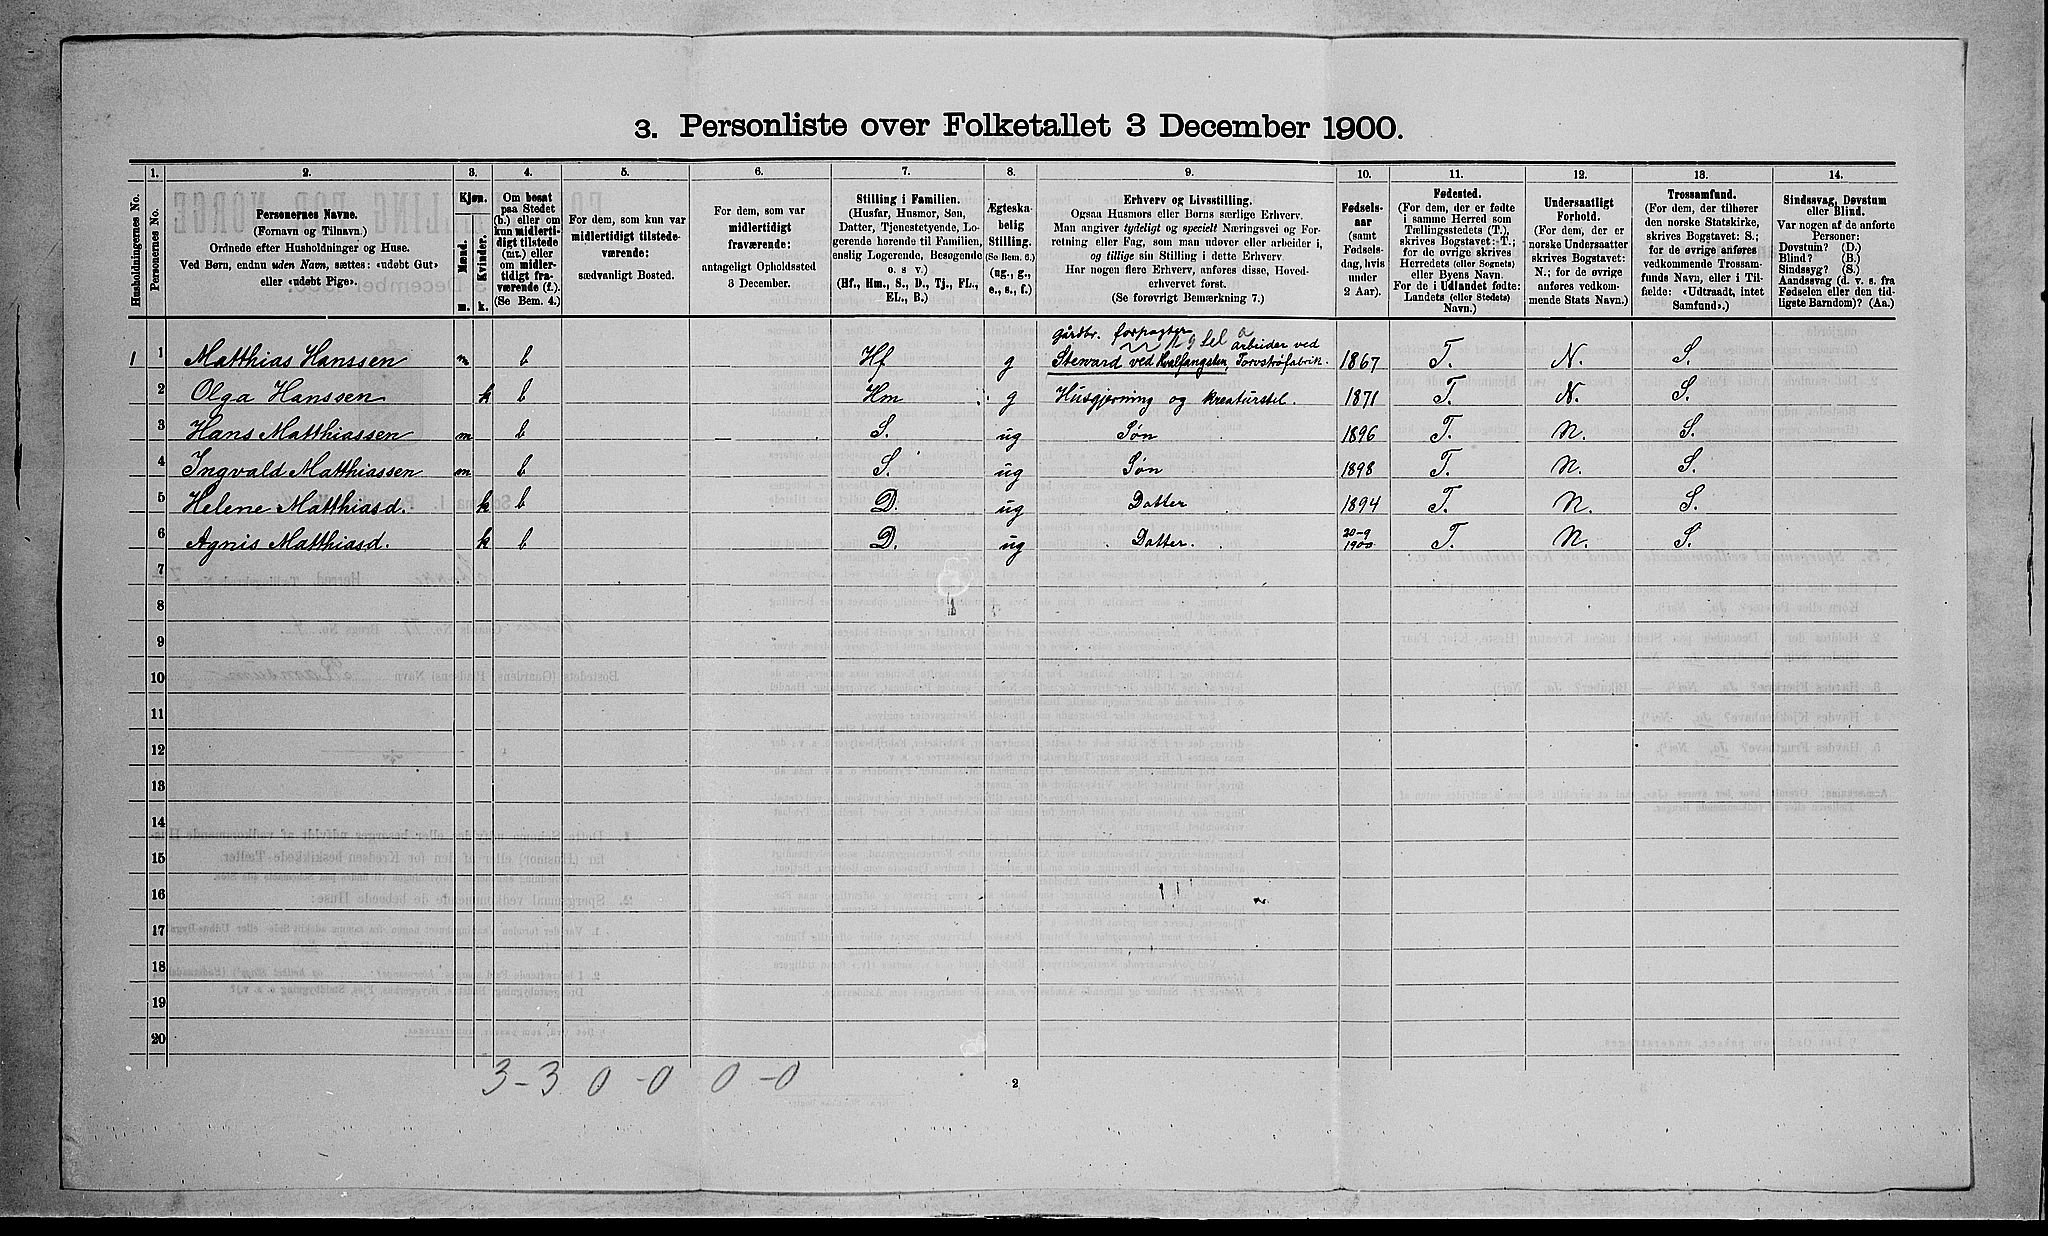 3. Personliste over Folketallet 3 December 1900.
Husholdningernes No.
1.
Personernes No.
2.
Personernes Navne.
(Fornavn og Tilnavn.)
Ordnede efter Husholdninger og Huse.
Ved Børn, endnu uden Navn, sættes: «udøbt Gut»
eller «udøbt Pige».
3.
Kjøn.
Mænd.
Kvinder.
m. k.
4.
Om bosat
paa Stedet
(b.) eller om
kun midlerti-
digt tilstede
(mt.) eller
om midler-
tidigt fra-
værende (f.)
(Se Bem. 4.)
5.
For dem, som kun var
midlertidigt tilstede-
værende:
sædvanligt Bosted.
6.
For dem, som var
midlertidigt
fraværende:
antageligt Opholdssted
3 December.
7.
Stilling i Familien.
(Husfar, Husmor, Søn,
Datter, Tjenestetyende, Lo-
gerende hørende til Familien,
enslig Logerende, Besøgende
o. s. v.)
(Hf., Hm., S., D., Tj., FL.,
EL., B.)
8.
Ægteska-
belig
Stilling.
(Se Bem. 6.)
(ug., g.,
e., s., f.)
9.
Erhverv og Livsstilling.
Ogsaa Husmors eller Børns særlige Erhverv.
Man angiver tydeligt og specielt Næringsvei og For-
retning eller Fag, som man udøver eller arbeider i,
og tillige sin Stilling i dette Erhverv.
Har nogen flere Erhverv, anføres disse, Hoved-
erhvervet først.
(Se forøvrigt Bemærkning 7.)
10.
Fødsels-
aar
(samt
Fødsels-
dag, hvis
under
2 Aar).
11.
Fødested.
(For dem, der er fødte
i samme Herred som
Tællingsstedets (T.),
skrives Bogstavet: T.;
for de øvrige skrives
Herredets (eller Sognets)
eller Byens Navn.
For de i Udlandet fødte:
Landets (eller Stedets)
Navn.)
12.
Undersaatligt
Forhold.
(For dem, der er
norske Undersaatter
skrives Bogstavet:
N.; for de øvrige
anføres vedkom-
mende Stats Navn.)
13.
Trossamfund.
(For dem, der tilhører
den norske Statskirke,
skrives Bogstavet: S.;
for de øvrige anføres
vedkommende Trossam-
funds Navn, eller i Til-
fælde: «Udtraadt, intet
Samfund».)
14.
Sindssvag, Døvstum
eller Blind.
Var nogen af de anførte
Personer:
Døvstum? (D.)
Blind? (B.)
Sindssyg? (S.)
Aandssvag (d. v. s. fra
Fødselen eller den tid-
ligste Barndom)? (Aa.)
gårdbr. forpagter
arbeider ved
1 1 Matthias Hanssen m b Hf g Steward ved Hvalfangsten, Torvstrøfabrik. 1867 T. N. S.
2 Olga Hanssen k b Hm g Husgjerning og kreaturstel. 1871 T. N. S.
3 Hans Matthiassen m b S. ug Søn 1896 T. N. S.
4 Ingvald Matthiassen m b S. ug Søn 1898 T. N. S.
5 Helene Matthiasd. k b D. ug Datter 1894 T. N. S.
6 Agnis Matthiasd. k b D. ug Datter. 20-9 1900 T. N. S.
7
8
9
10
11
12
13
14
15
16
17
18
19
20
3-3 0-0 0-0
2